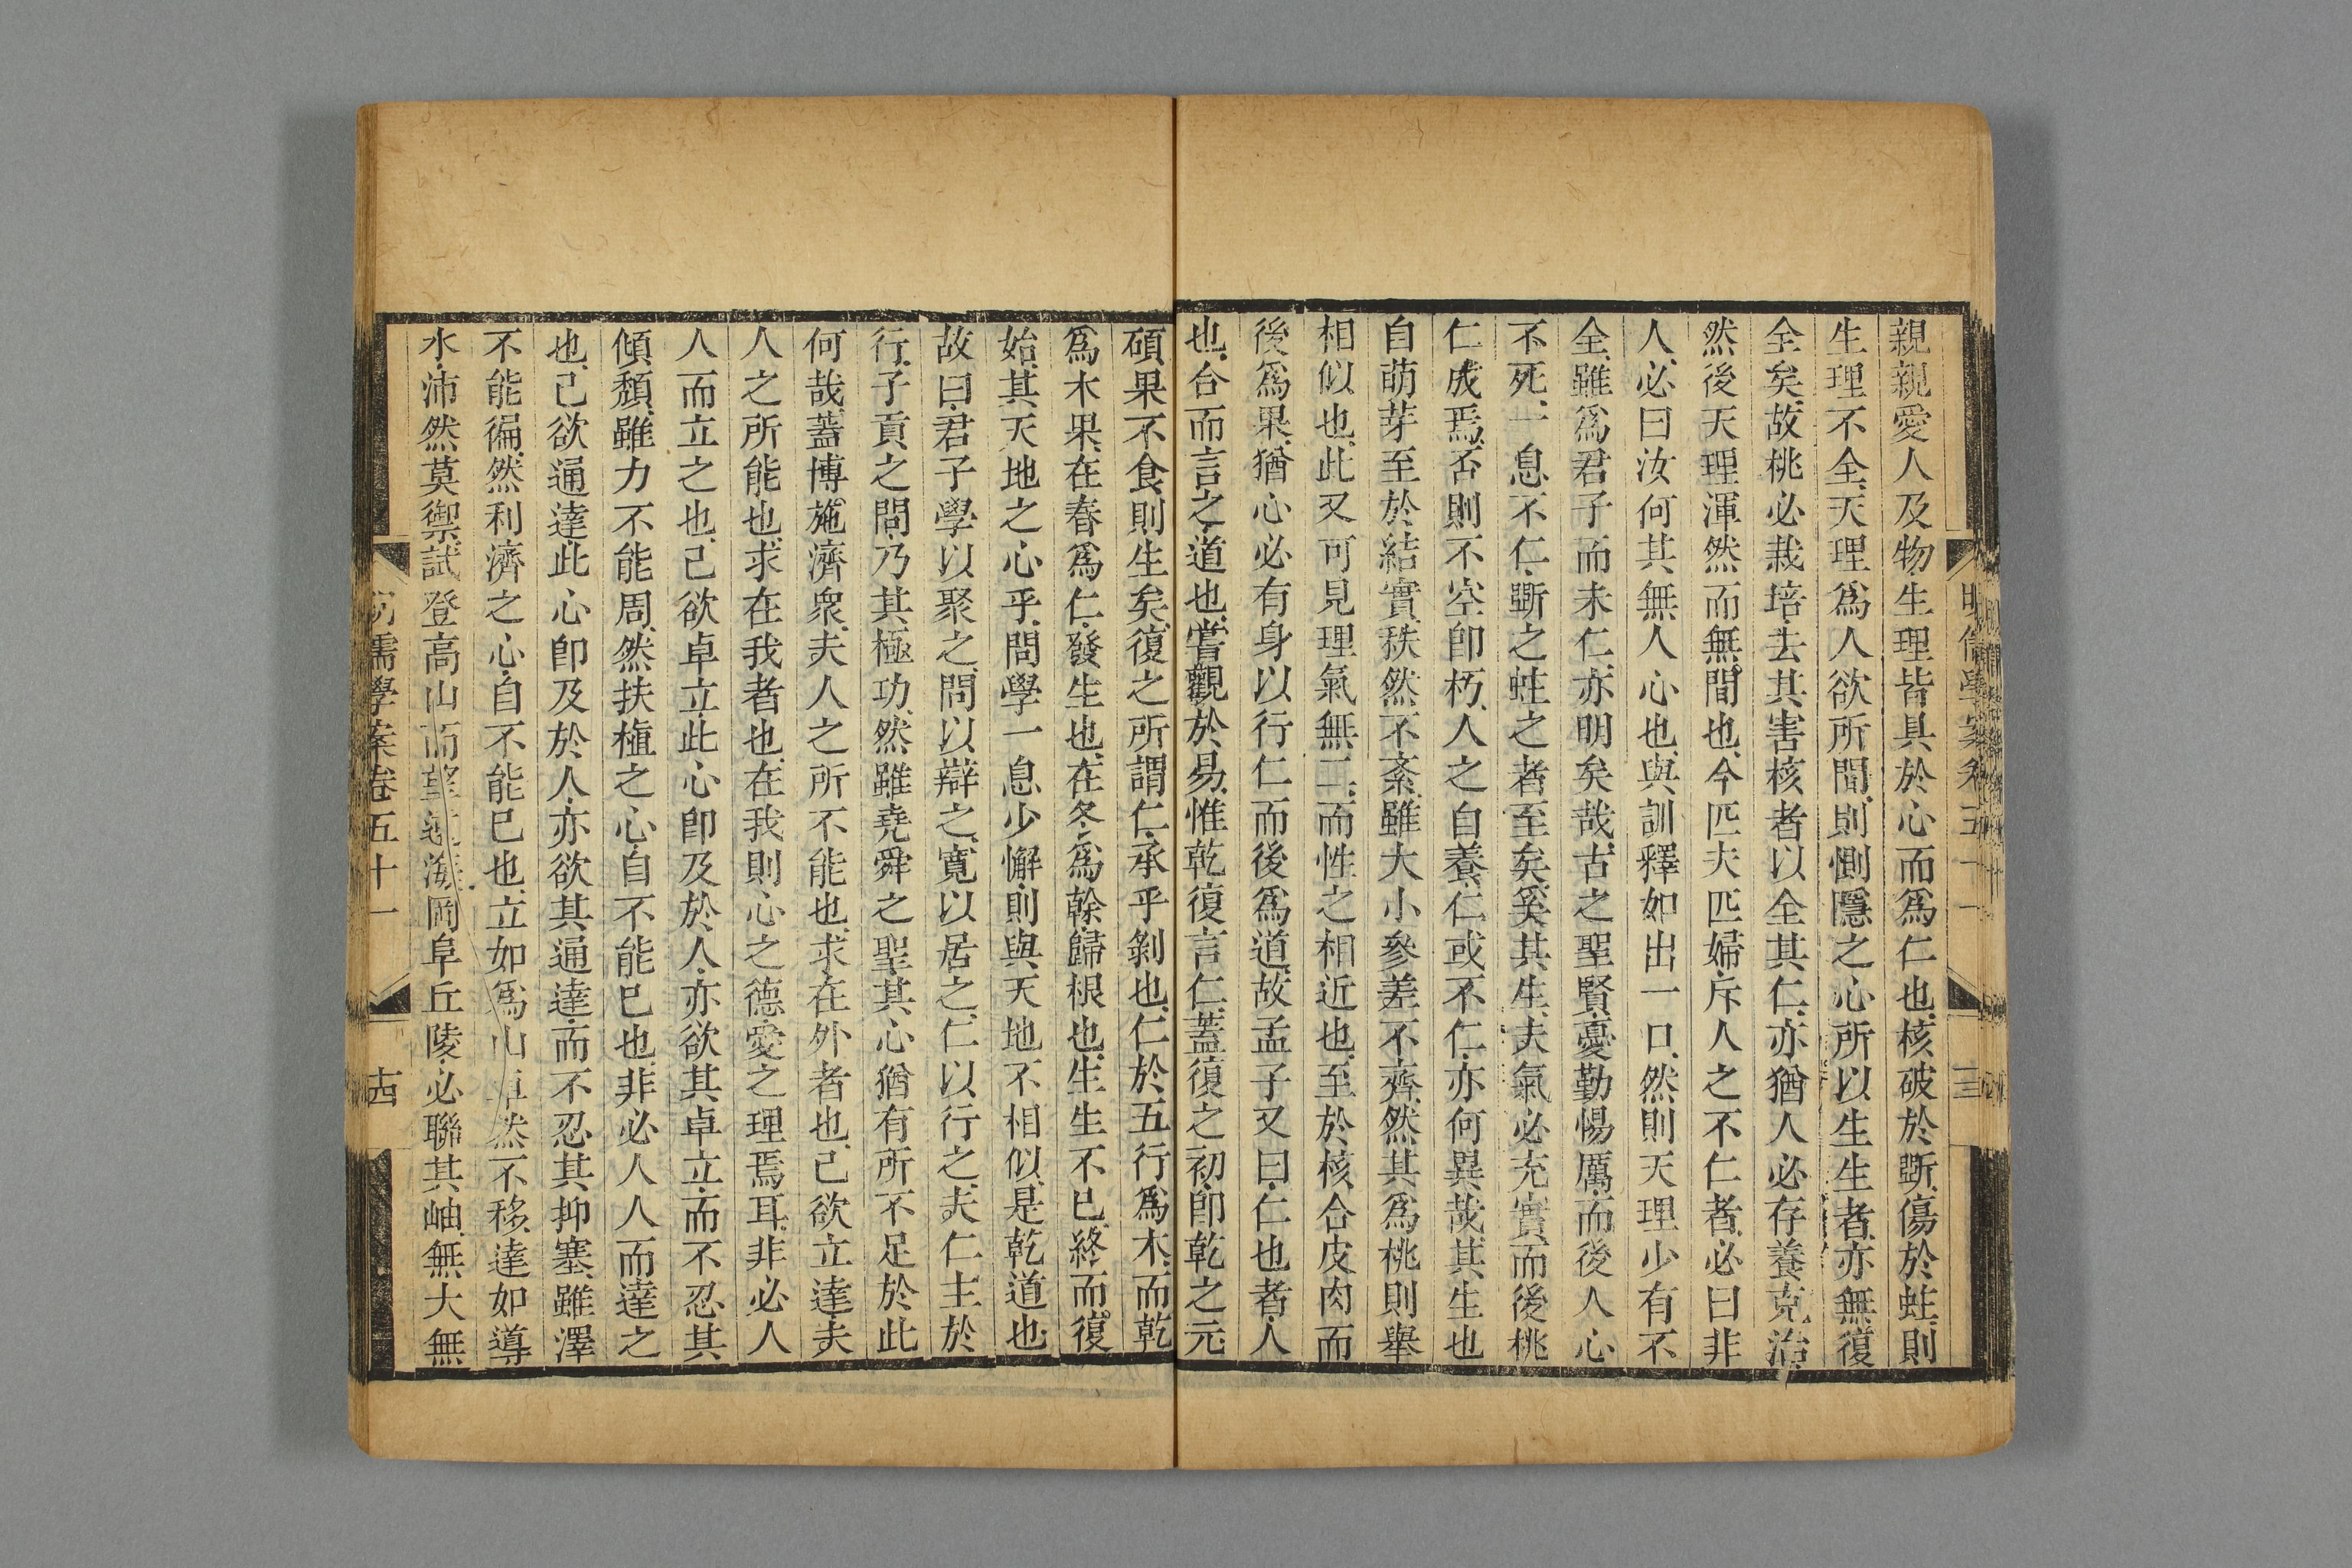 親親愛人及物生理皆具於心而爲仁也核破於斵傷於蛀則
生理不全天理爲人欲所間則惻隱之心所以生生者亦無復
全矣故桃必栽培去其害核者以全其仁亦猶人必存養克治
然後天理渾然而無間也今匹夫匹婦斥人之不仁者必曰非
人必曰汝何其無人心也與訓釋如出一口然則天理少有不
全雖爲君子而未仁亦明矣哉古之聖賢憂勤惕厲而後人心
不死一息不仁斵之蛀之者至矣奚其生夫氣必充實而後桃
仁成焉否則不空卽朽人之自養仁或不仁亦何異哉其生也
自萌芽至於結實秩然不紊雖大小參差不齊然其爲桃則舉
相似也此又可見理氣無二而性之相近也至於核合皮肉而
後爲果猶心必有身以行仁而後爲道故孟子又曰仁也者人
也合而言之道也嘗觀於易惟乾復言仁蓋復之初卽乾之元
碩果不食則生矣復之所謂仁承乎剝也仁於五行爲木而乾
爲木果在春爲仁發生也在冬爲榦歸根也生生不已終而復
始其天地之心乎問學一息少懈則與天地不相似是乾道也
故曰君子學以聚之問以辯之寬以居之仁以行之夫仁主於
行子貢之問乃其極功然雖堯舜之聖其心猶有所不足於此
何哉蓋博施濟衆夫人之所不能也求在外者也己欲立達夫
人之所能也求在我者也在我則心之德愛之理焉耳非必人
人而立之也己欲卓立此心卽及於人亦欲其卓立而不忍其
傾頹雖力不能周然扶植之心自不能已也非必人人而達之
也己欲通達此心卽及於人亦欲其通達而不忍其抑塞雖澤
不能徧然利濟之心自不能已也立如爲山 然不移達如導
水沛然莫禦試登高山而望 海岡阜丘陵必聯其岫無大無
儒學案卷五十一 十四